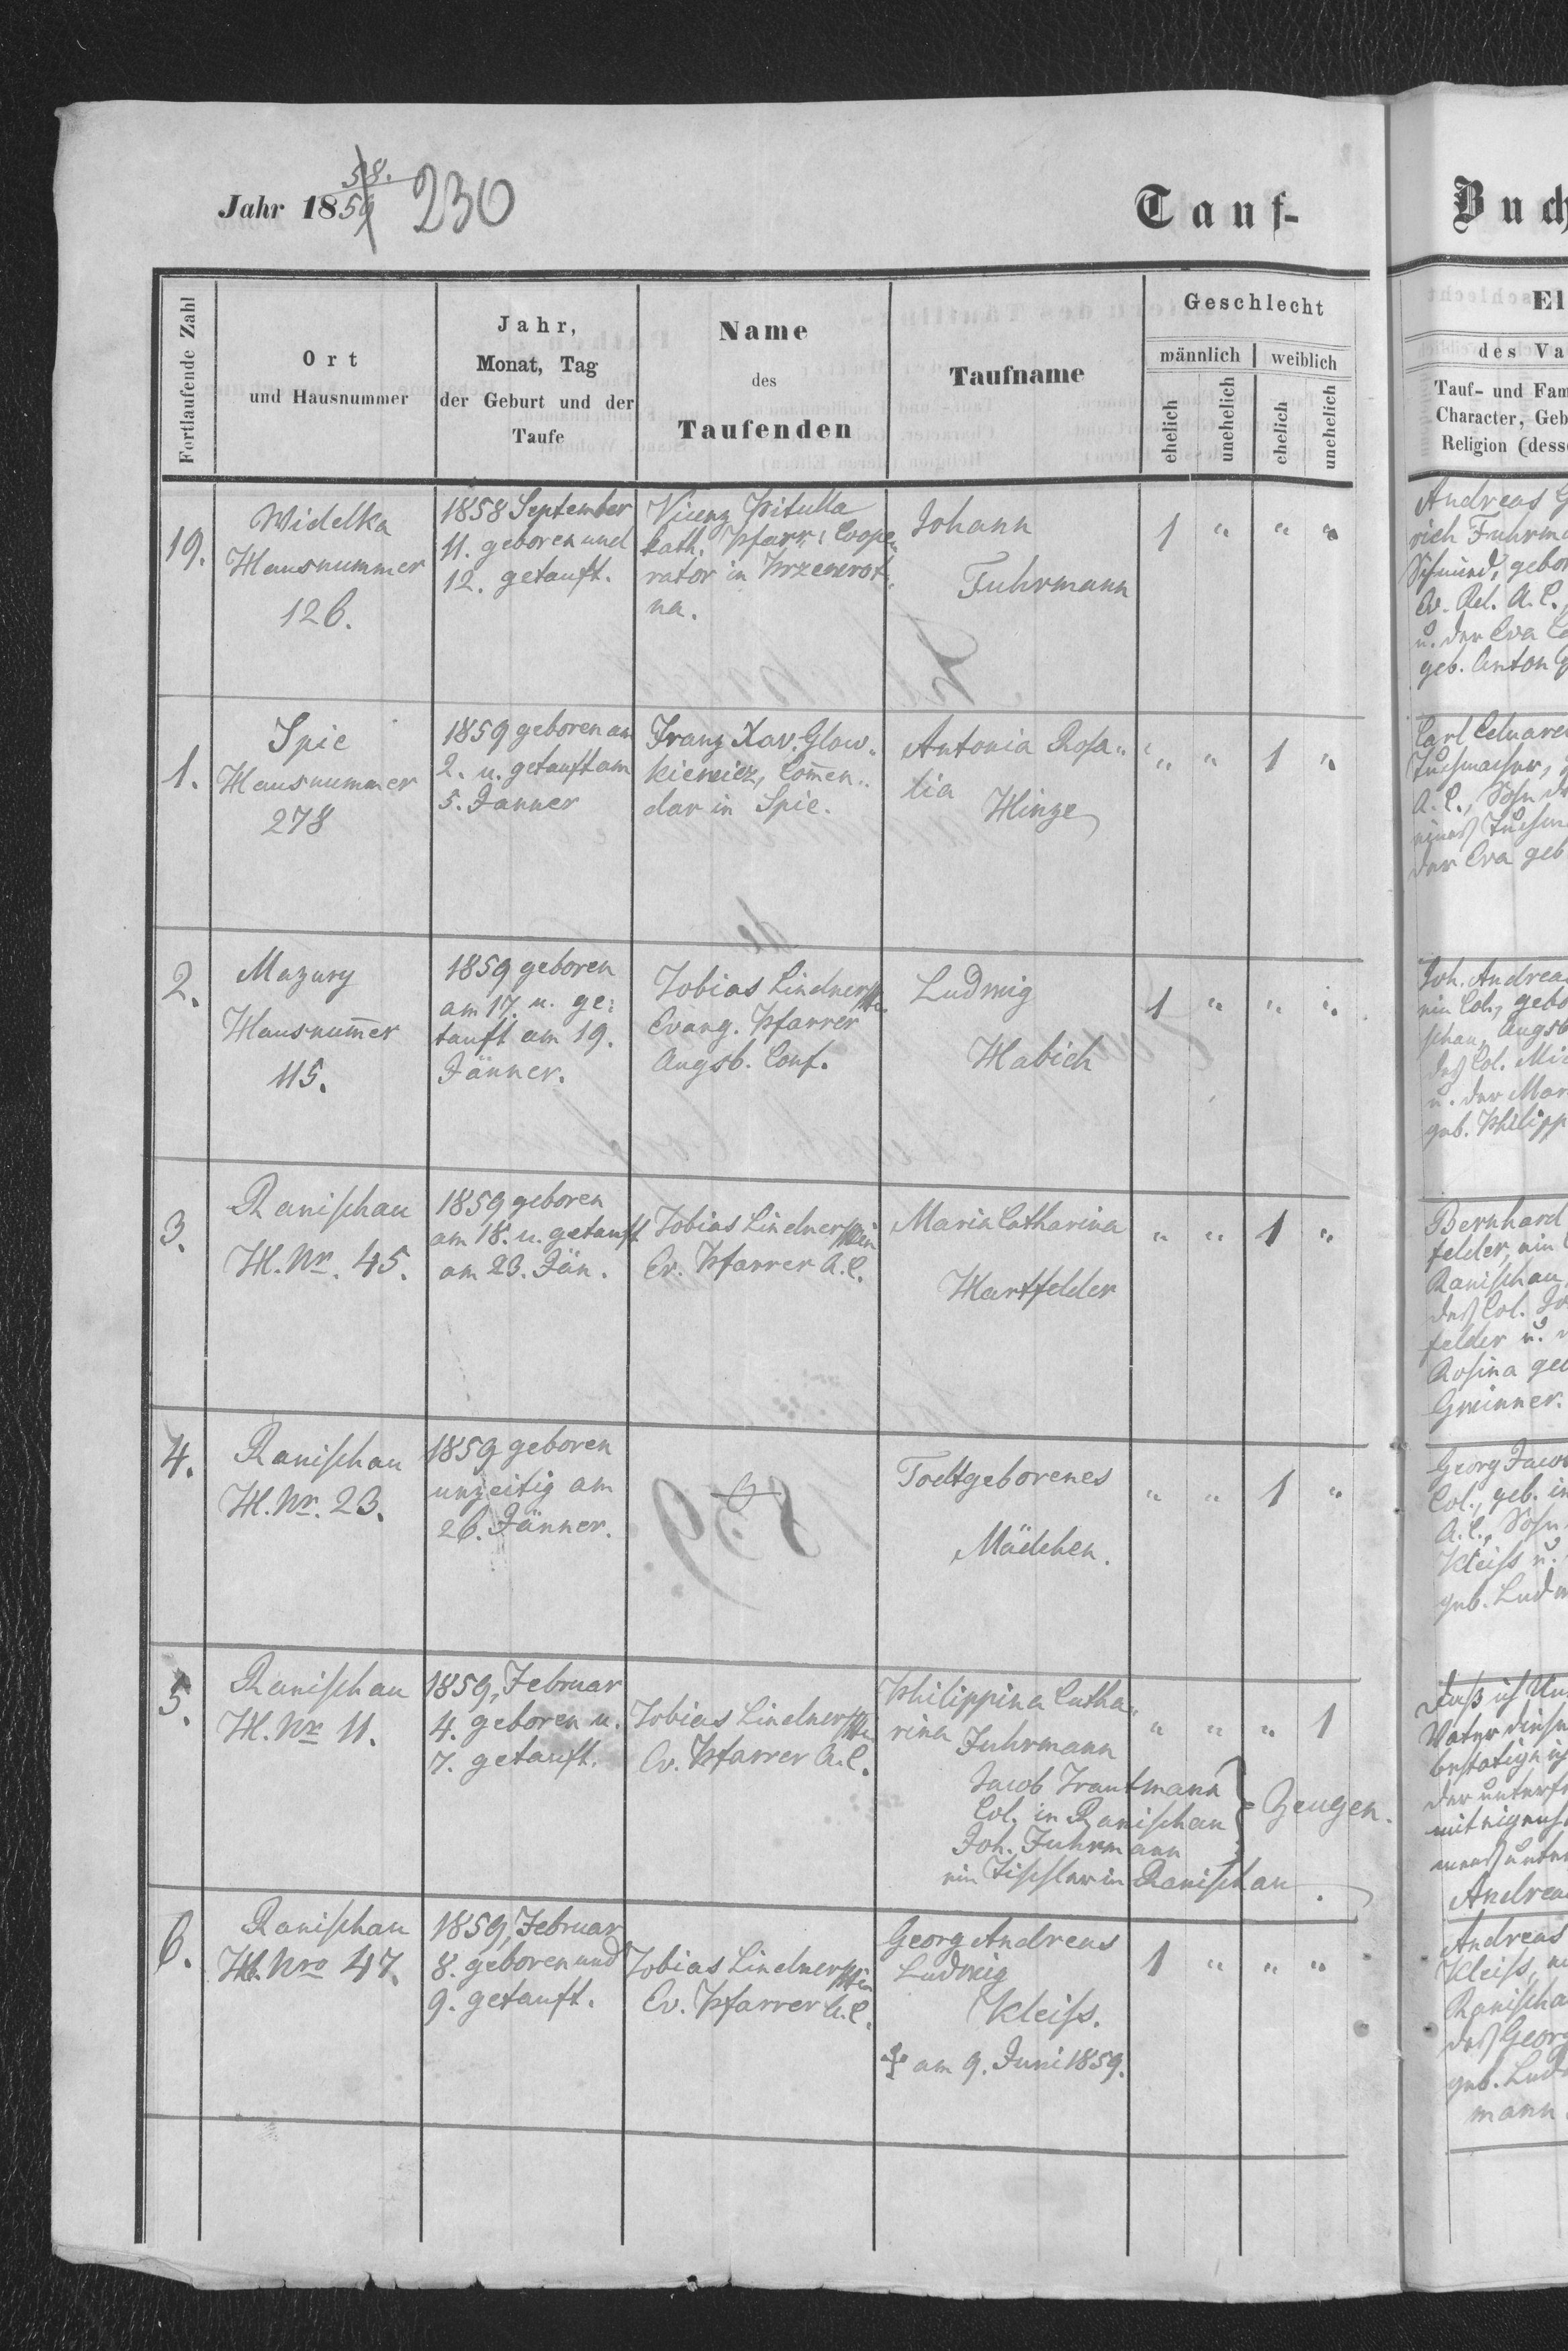 58.
Jahr 1859 230
Tauf-
Fortlaufende Zahl
Ort
und Hausnummer
Jahr,
Monat, Tag
der Geburt und der
Taufe
Name
des
Taufenden
Taufname
Geschlecht
männlich weiblich
ehelich
unehelich
ehelich
unehelich
19.
Widelka
Hausnummer
126.
1858 September
11. geboren und
12. getauft.
Vicenz Pitulla
kath. Pfarr: Coope„
rator in
na.
Johann
Fuhrmann
1 „ „ „
1.
Spie
Hausnummer
278
1859 geboren am
2. u. getauft am
5. Janner
Franz Xav. Glow„
kiewicz, Com̄en„
dar in Spie.
Antonia Rosa„
lia
Hinze
„ „ 1 „
2.
Mazury
Hausnum̄er
115.
1859 geboren
am 17. u. ge:
tauft am 19.
Jänner.
Tobias Lindner
Evang. Pfarrer
Augsb. Conf.
Ludwig
Habich
1 „ „ „
3.
Ranischau
H. Nr. 45.
1859 geboren
am 18. u. getauft
am 23. Jän.
Tobias Lindner
Ev. Pfarrer A. C.
Maria Catharina
Hartfelder
„ „ 1 „
4.
Ranischau
H. Nr. 23.
1859 geboren
unzeitig am
26. Jänner.
Todtgeborenes
Mädchen.
„ „ 1 „
5.
Ranischau
H. Nr 11.
1859, Februar
4. geboren u.
7. getauft.
Tobias Lindner
Ev. Pfarrer A. C.
Philippina Catha„
rina Fuhrmann
„ „ „ 1
Jacob Trautmann
Col. in Ranischau
Joh. Fuhrmann
ein Tischler in Ranischau.
Zeugen.
6.
Ranischau
H. Nro 47.
1859, Februar
8. geboren und
9. getauft.
Tobias Lindner
Ev. Pfarrer A. C.
Georg Andreas
Ludwig
Kleiss.
† am 9. Juni 1859.
1 „ „ „
Buch
El
des Va
Tauf- und Fam
Character, Geb
Religion (dess
Andreas G
rich Fuhrma
Schmied, gebor
Ev. Rel. A. C.,
u. der Eva
geb. Anton
Carl Eduard
Tuchmacher,
A. C., Sohn
eines Tuchm
der Eva geb
Joh. Andreas
ein Col., gebo
schau, Augsb
des Col. Mi
u. der Mar
geb. Philipp
Bernhard
felder, ein
Ranischau,
des Col. Jo
felder u.
Rosina geb
Gwinner.
Georg Jacob
Col., geb. in
A. C., Sohn
Kleiss u.
geb. Ludw
Daß ich
Vater dieses
bestätige ich
der unterf
mit eigenh
Andrea
Andreas
Kleiss,
Ranischa
des Georg
geb. Lud
mann